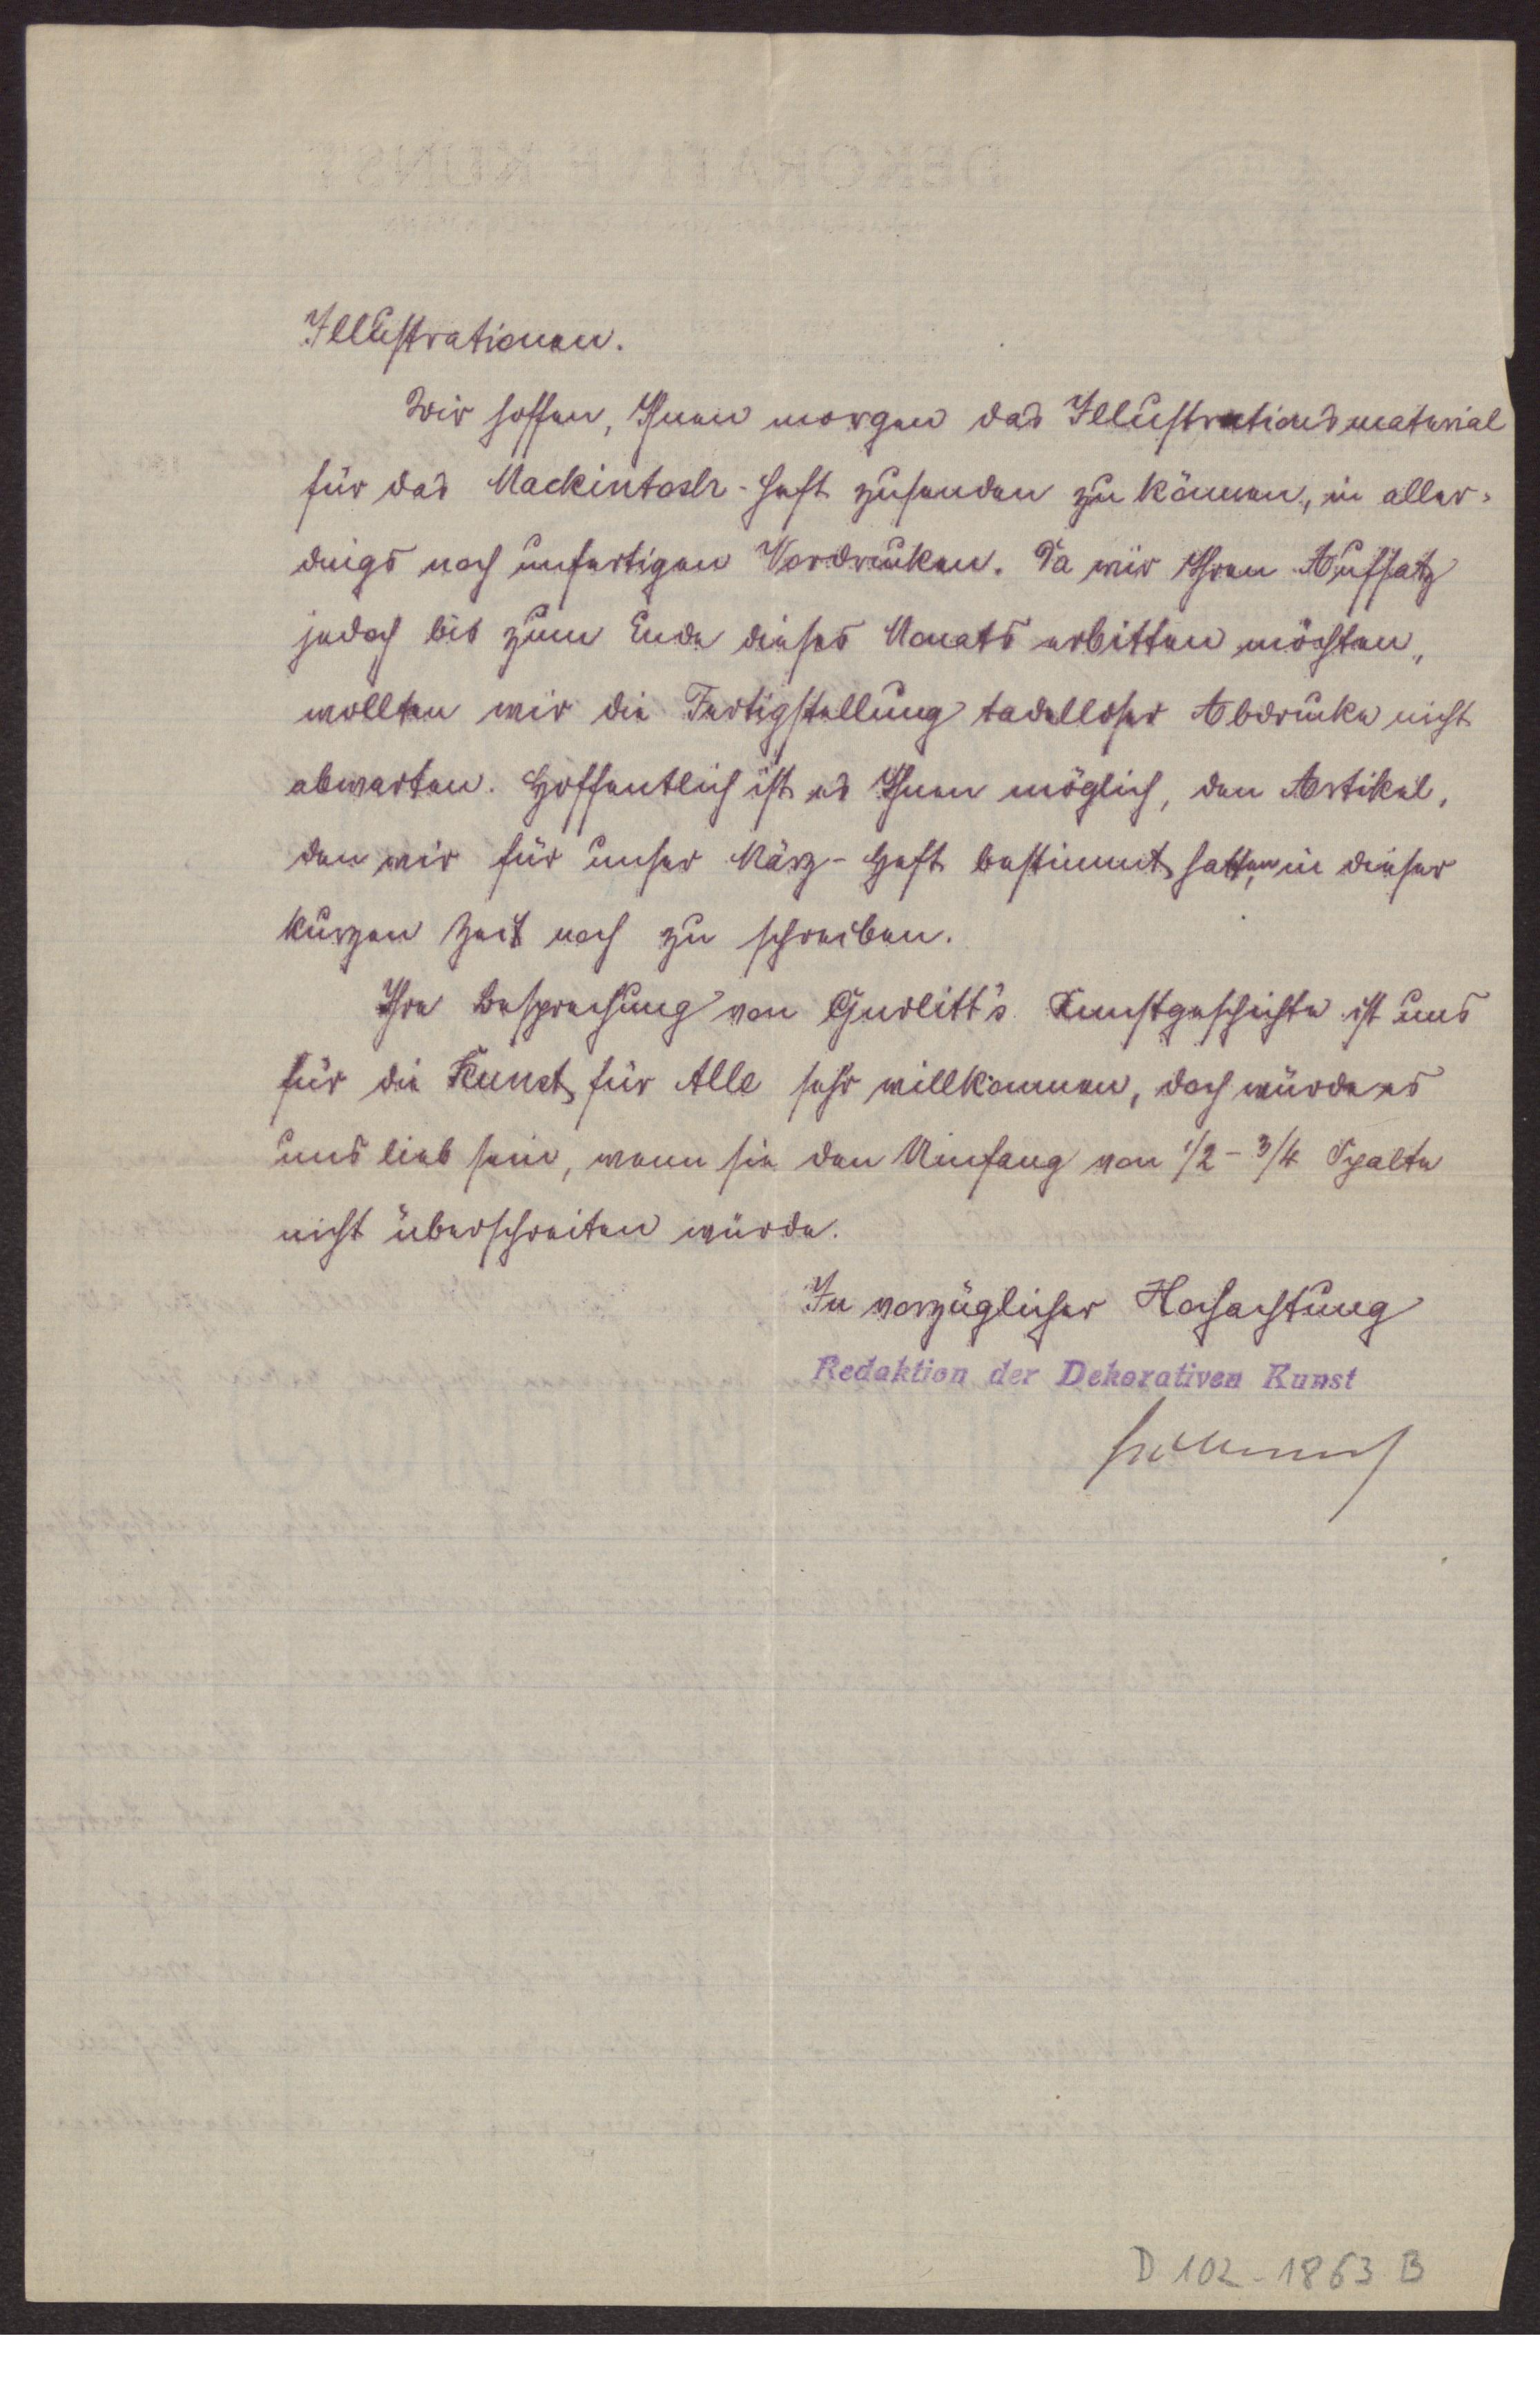 Illustrationen.
Wir hoffen, Ihnen morgen das Illustrationsmaterial
für das Mackintosh-Heft zusenden zu können, in aller-
dings noch unfertigen Vordrucken. Da wir Ihren Aufsatz
jedoch bis zum Ende dieses Monats erbitten möchten,
wollten wir die Fertigstellung tadelloser Abdrucke nicht
abwarten. Hoffentlich ist es Ihnen möglich, den Artikel,
den wir für unser März-Heft bestimmt hatten, in dieser
kurzen Zeit noch zu schreiben.
Ihre Besprechung von Gurlitt's Kunstgeschichte ist uns
für die Kunst für Alle sehr willkommen, doch würde es
uns lieb sein, wenn sie den Umfang von 1/2 - 3/4 Spalte
nicht überschreiten würde.
In vorzüglicher Hochachtung
Redaktion der Dekorativen Kunst
D 102-1863 B